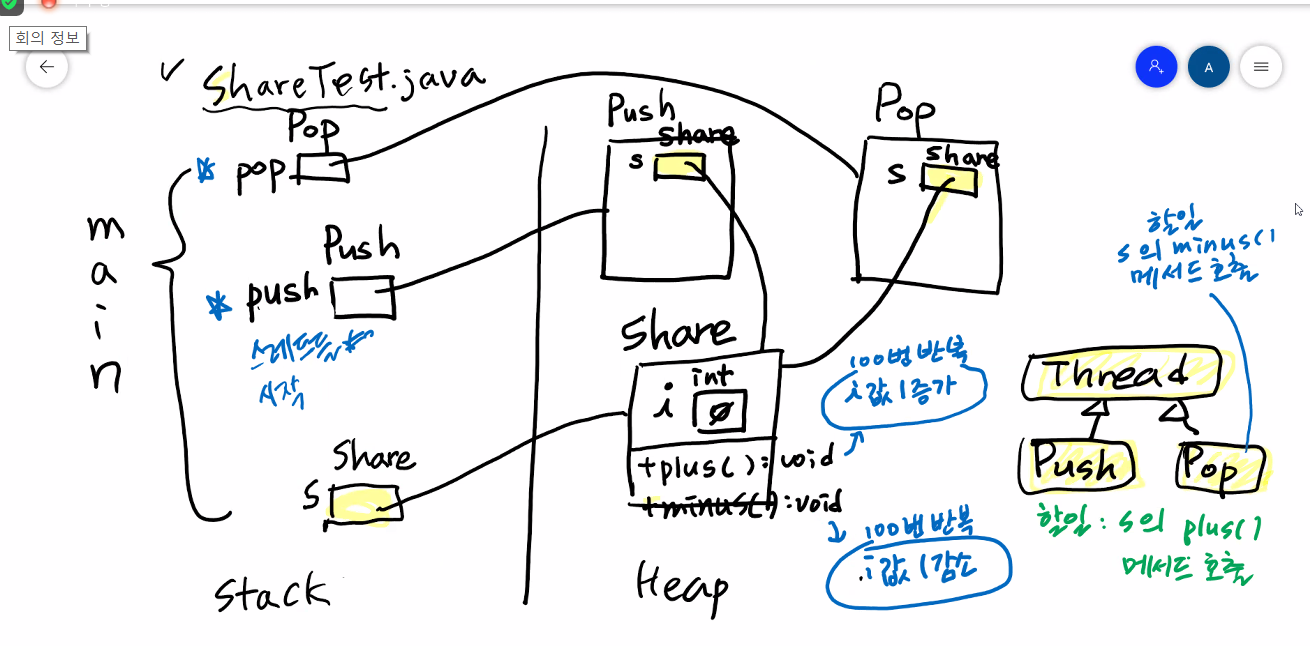 회의 정보
A
✓ ShareTest.java
Pop
pop
Push
push
스레드들
시작
main
Share
s
Stack
Push
Share
s
Pop
Share
s
Share
int
i 0
+plus():void
+minus():void
Heap
100번 반복
i값 1증가
100번 반복
i값 1감소
할일
s의 minus()
메서드 호출
Thread
Push
Pop
할일 : s의 plus()
메서드 호출